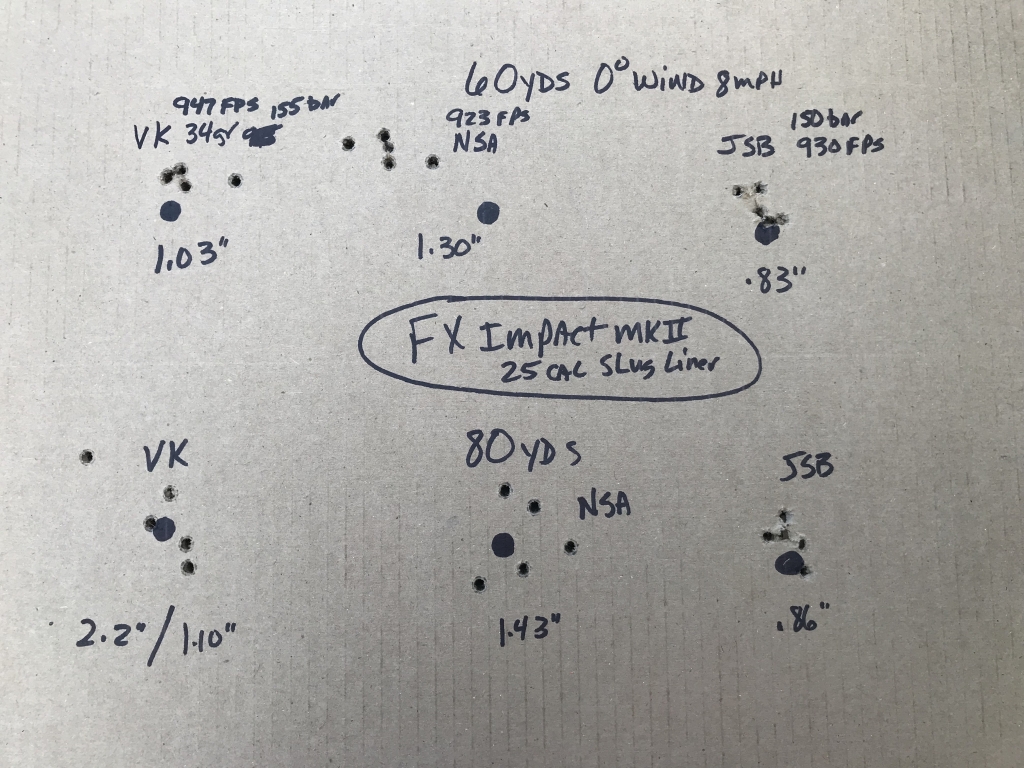 60YDS 0° WIND 8MPH
947 FPS 155 bar
VK 34gr
923 FPS
NSA
150 bar
JSB 930 FPS
1.03"
1.30"
.83"
FX Impact MKII
25 CAL Slug Liner
VK
80YDS
NSA
JSB
2.2"/1.10"
1.43"
.86"